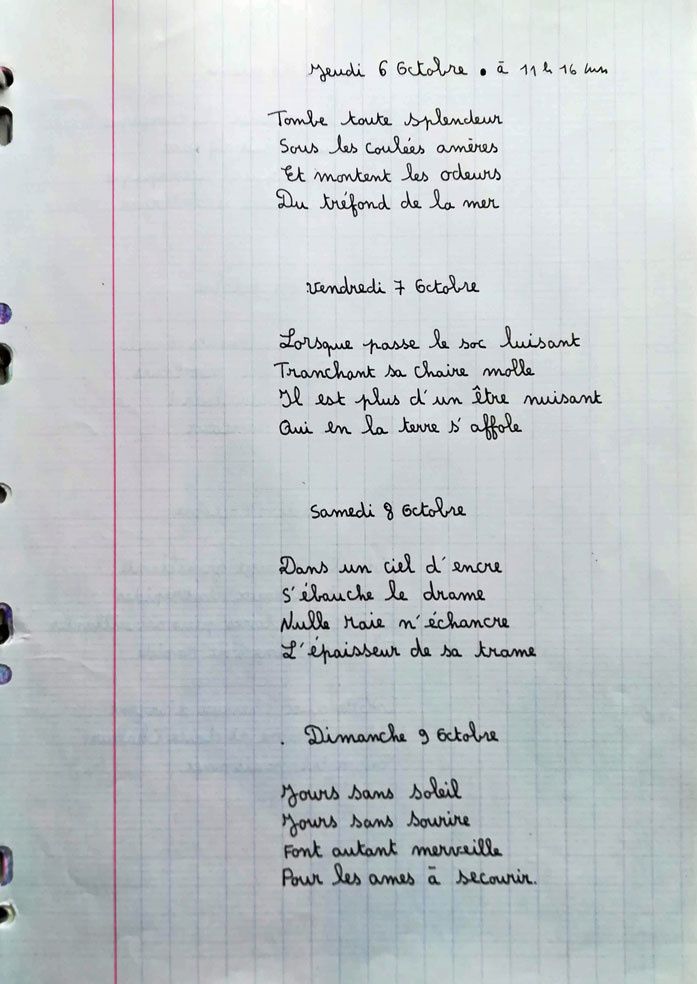 Jeudi 6 Octobre . à 11 h 16 mn
Tombe toute splendeur
Sous les coulées amères
Et montent les odeurs
Du tréfond de la mer
Vendredi 7 Octobre
Lorsque passe le soc luisant
Tranchant sa chaire molle
Il est plus d'un être nuisant
Qui en la terre s'affole
Samedi 8 Octobre
Dans un ciel d'encre
S'ébauche le drame
Nulle raie n'échancre
L'épaisseur de sa trame
. Dimanche 9 Octobre
Jours sans soleil
Jours sans sourire
Font autant merveille
Pour les ames à secourir.